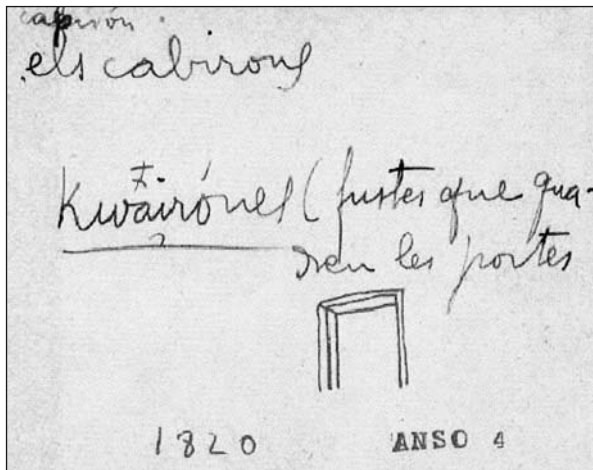 capirón.
els cabirons
Kwairónes (fustes que qua-
dren les portes
1820 ANSO 4